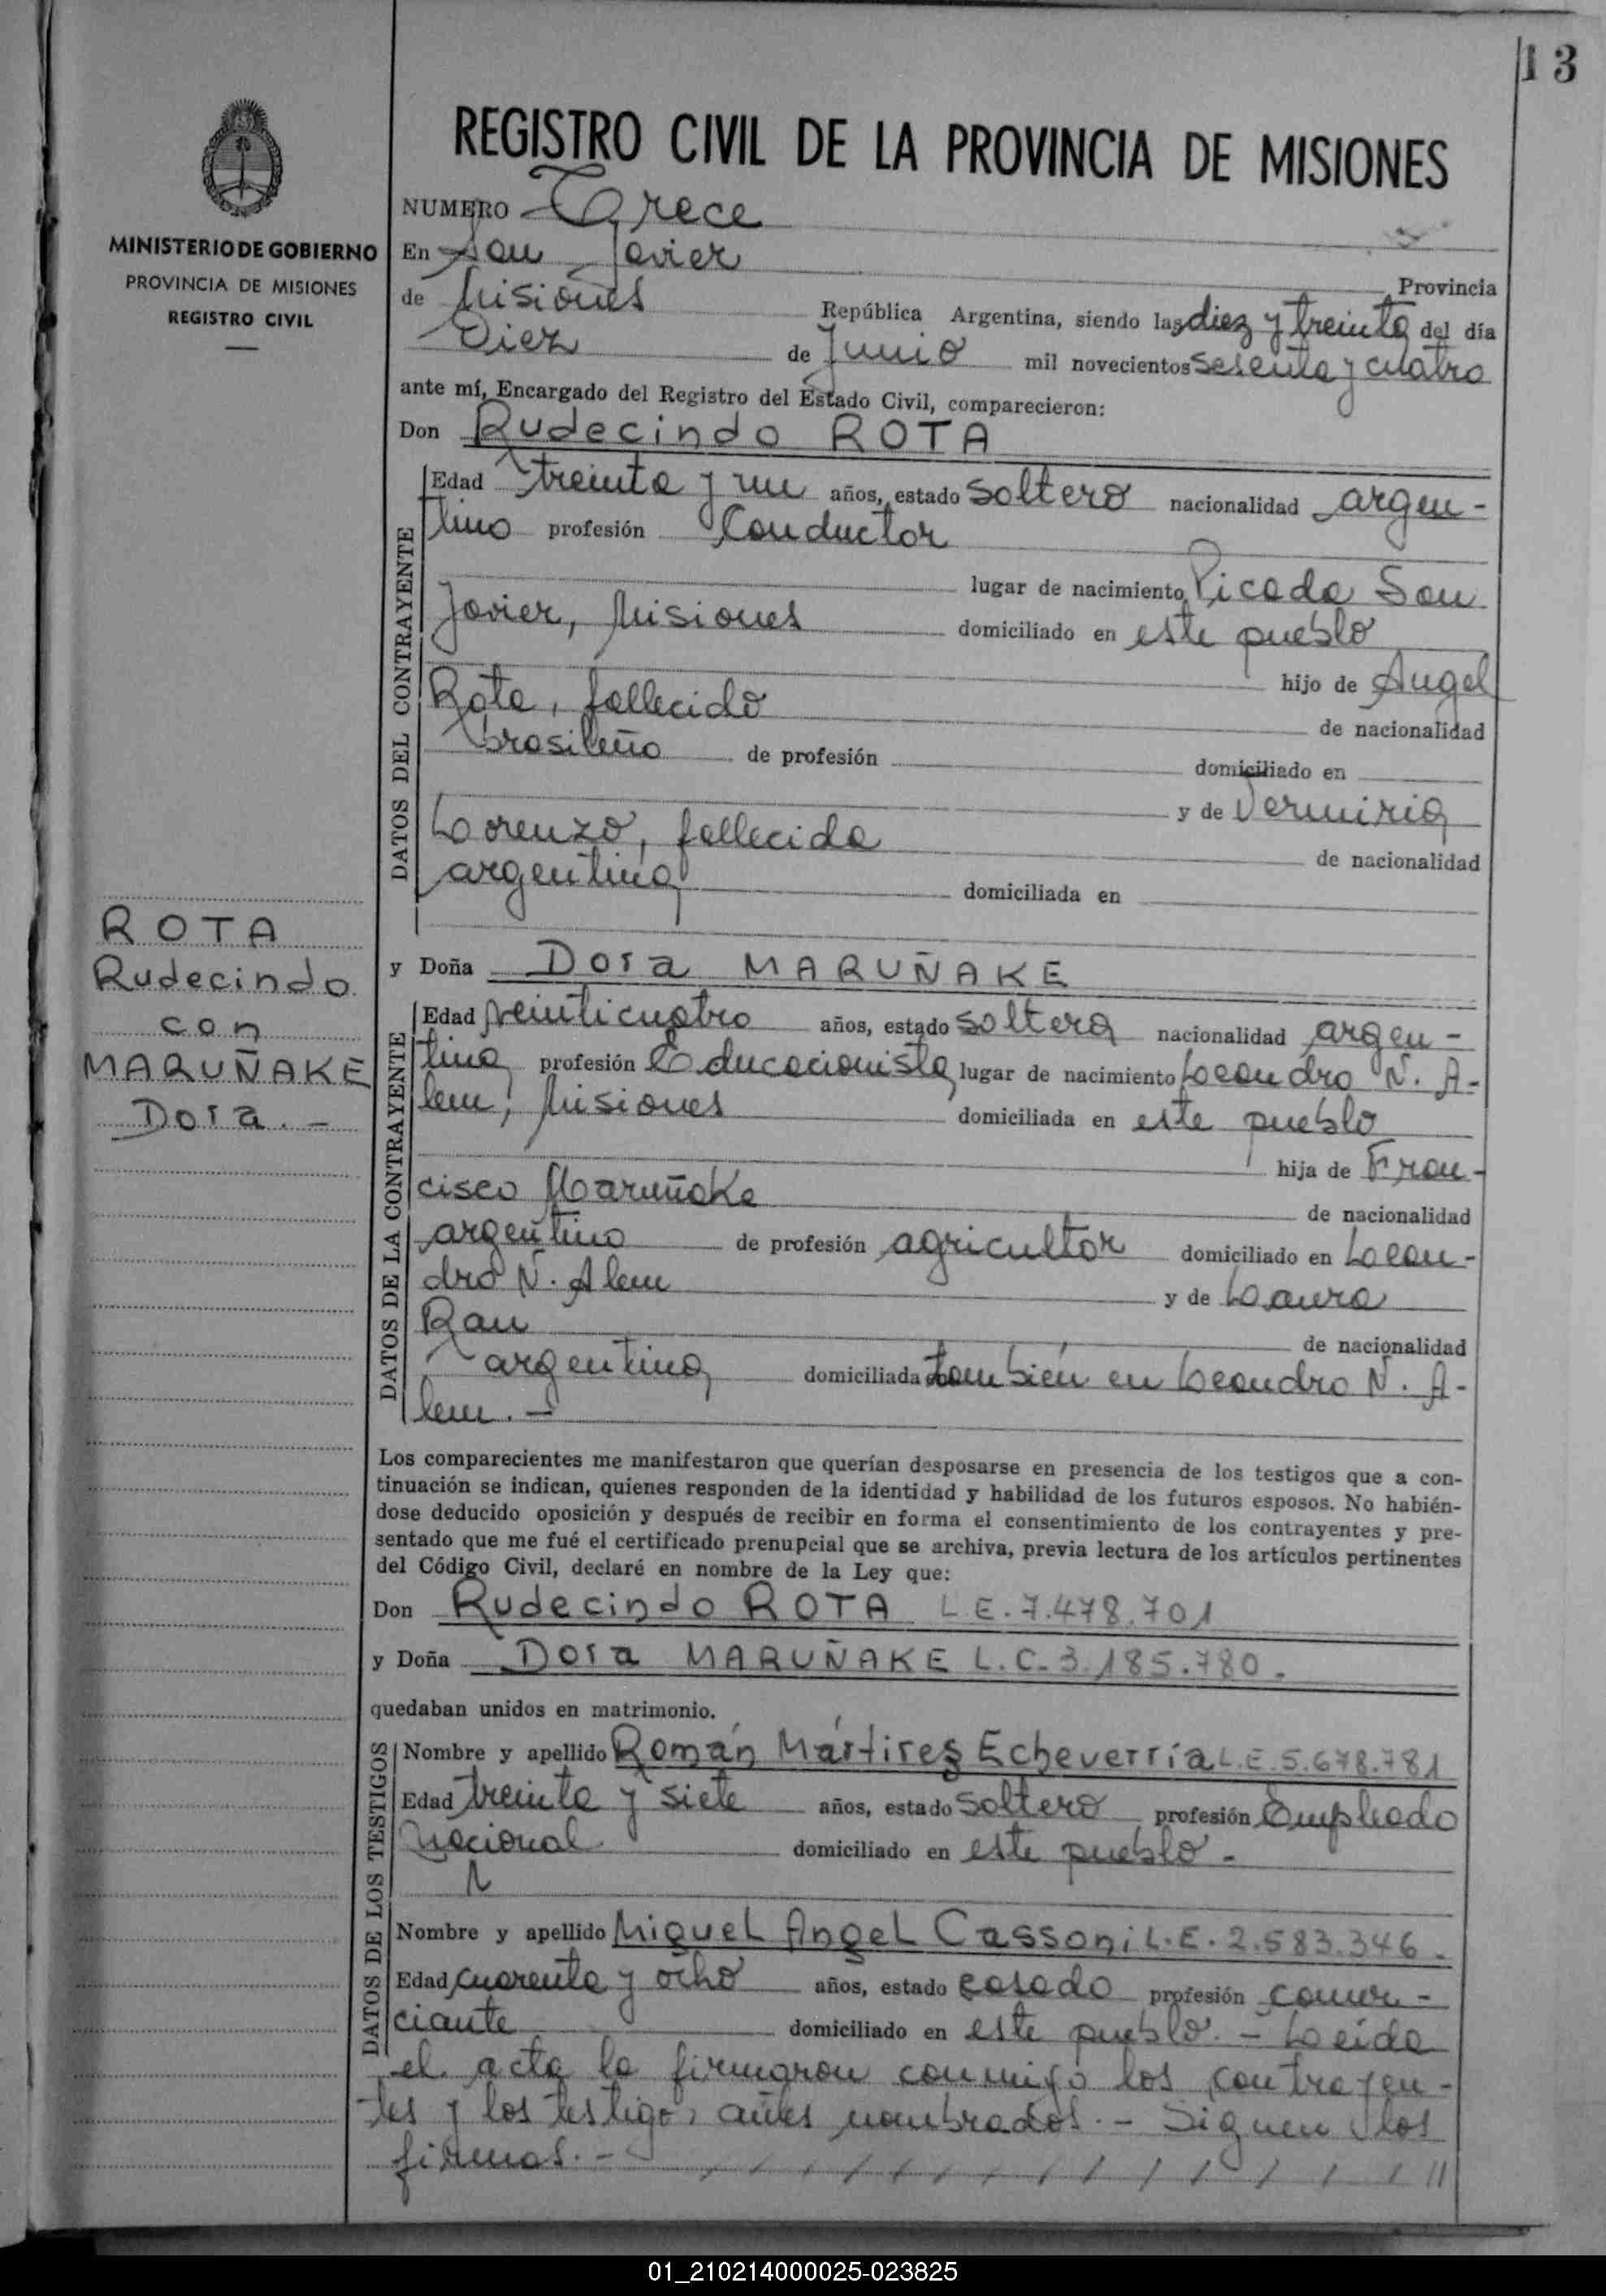 13
REGISTRO CIVIL DE LA PROVINCIA DE MISIONES
MINISTERIO DE GOBIERNO
PROVINCIA DE MISIONES
REGISTRO CIVIL
NUMERO Trece
En San Javier Provincia
de Misiones República Argentina, siendo las diez y treinta del día
Diez de Junio mil novecientos sesenta y cuatro
ante mí, Encargado del Registro del Estado Civil, comparecieron:
Don Rudecindo ROTA
DATOS DEL CONTRAYENTE
Edad treinta y un años, estado soltero nacionalidad argen-
tino profesión Conductor
lugar de nacimiento Picada San
Javier, Misiones domiciliado en este pueblo
hijo de Angel
Rota, fallecido de nacionalidad
brasileño de profesión domiciliado en
y de Vermiria
Lorenzo, fallecida de nacionalidad
argentina domiciliada en
ROTA
Rudecindo
con
MARUÑAKE
Dora.-
y Doña Dora MARUÑAKE
DATOS DE LA CONTRAYENTE
Edad veinticuatro años, estado soltera nacionalidad argen-
tina profesión Educacionista lugar de nacimiento Leandro N. A-
lem, Misiones domiciliada en este pueblo
hija de Fran-
cisco Maruñake de nacionalidad
argentino de profesión agricultor domiciliado en Lean-
dro N. Alem y de Laura
Rau de nacionalidad
argentina domiciliada también en Leandro N. A-
lem.-
Los comparecientes me manifestaron que querían desposarse en presencia de los testigos que a con-
tinuación se indican, quienes responden de la identidad y habilidad de los futuros esposos. No habién-
dose deducido oposición y después de recibir en forma el consentimiento de los contrayentes y pre-
sentado que me fué el certificado prenupcial que se archiva, previa lectura de los artículos pertinentes
del Código Civil, declaré en nombre de la Ley que:
Don Rudecindo ROTA L.E. 7.478.701
y Doña Dora MARUÑAKE L.C. 3.185.780.
quedaban unidos en matrimonio.
DATOS DE LOS TESTIGOS
Nombre y apellido Román Mártires Echeverría L.E. 5.678.781
Edad treinta y siete años, estado soltero profesión Empleado
Nacional domiciliado en este pueblo.-
Nombre y apellido Miguel Angel Cassoni L.E. 2.583.346.
Edad cuarenta y ocho años, estado casado profesión comer-
ciante domiciliado en este pueblo.- Leida
el acta la firmaron conmigo los contrayen-
tes y los testigos antes nombrados.- Siguen las
firmas.-
01_210214000025-023825